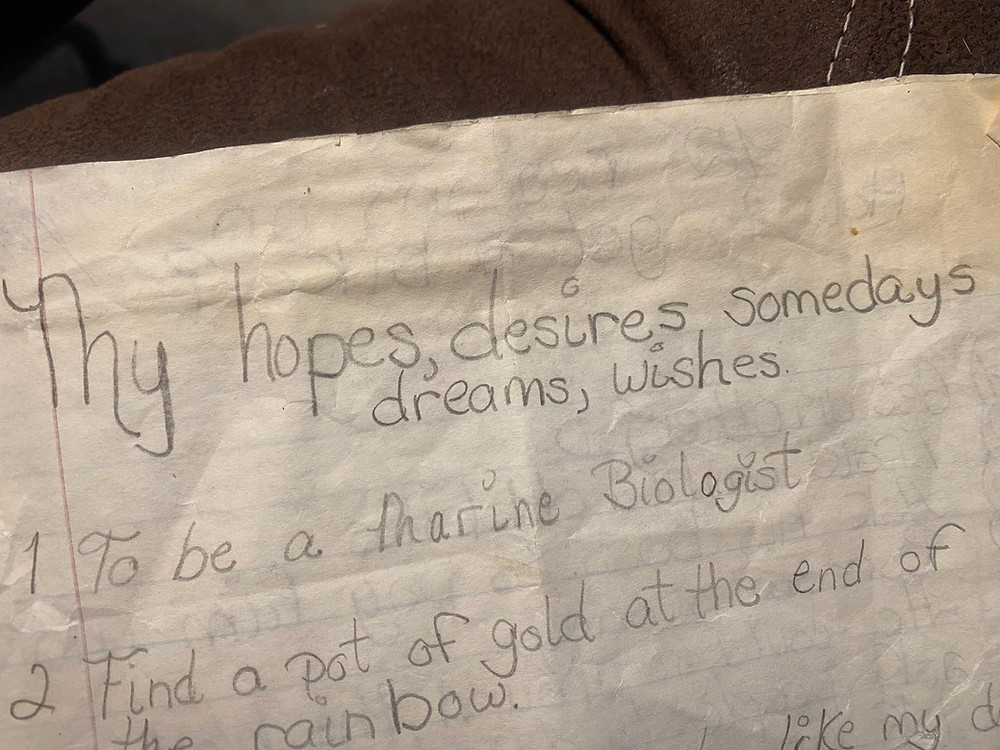 My hopes, desires, somedays
dreams, wishes.
1 To be a Marine Biologist
2 Find a pot of gold at the end of
the rainbow.
like my d